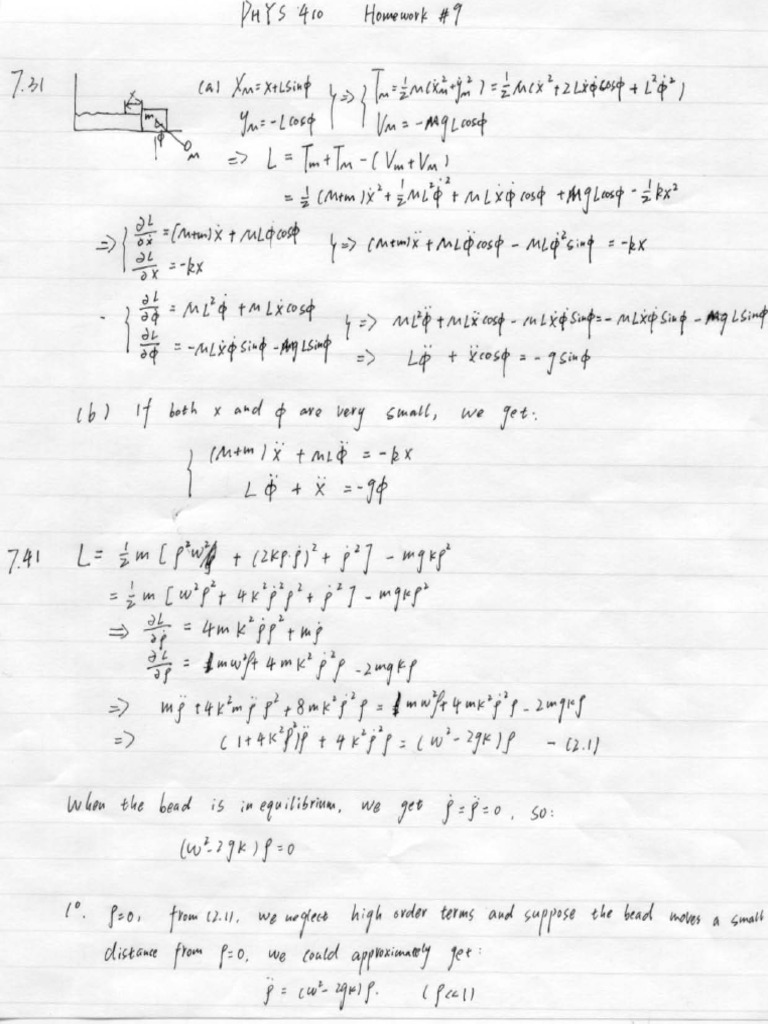 PHYS 410 Homework #9
7.31
x
m
φ
M
(a) X_M = x+Lsinφ } => { T_M = ½M(ẋ_M²+ẏ_M²) = ½M(ẋ²+2Lẋφ̇cosφ + L²φ̇²)
y_M = -Lcosφ V_M = -MgLcosφ
=> L = T_m + T_M - (V_m + V_M)
= ½(M+m)ẋ² + ½ML²φ̇² + MLẋφ̇cosφ + MgLcosφ - ½kx²
=> { ∂L/∂ẋ = (M+m)ẋ + MLφ̇cosφ
∂L/∂x = -kx } => (M+m)ẍ + MLφ̈cosφ - MLφ̇²sinφ = -kx
- { ∂L/∂φ̇ = ML²φ̇ + MLẋcosφ
∂L/∂φ = -MLẋφ̇sinφ - MgLsinφ } => ML²φ̈ + MLẍcosφ - MLẋφ̇sinφ = -MLẋφ̇sinφ - MgLsinφ
=> Lφ̈ + ẍcosφ = -gsinφ
(b) If both x and φ are very small, we get:
{ (M+m)ẍ + MLφ̈ = -kx
Lφ̈ + ẍ = -gφ
7.41 L = ½m[ρ²w² + (2kρ·ρ̇)² + ρ̇²] - mgkρ²
= ½m[w²ρ² + 4k²ρ̇²ρ² + ρ̇²] - mgkρ²
=> ∂L/∂ρ̇ = 4mk²ρ̇ρ² + mρ̇
∂L/∂ρ = mw²ρ + 4mk²ρ̇²ρ - 2mgkρ
=> mρ̈ + 4k²mρ̈ρ² + 8mk²ρ̇²ρ = mw²ρ + 4mk²ρ̇²ρ - 2mgkρ
=> (1+4k²ρ²)ρ̈ + 4k²ρ̇²ρ = (w²-2gk)ρ - (2.1)
When the bead is in equilibrium, we get ρ̇ = ρ̈ = 0, so:
(w²-2gk)ρ = 0
1°. ρ=0, from (2.1), we neglect high order terms and suppose the bead moves a small
distance from ρ=0, we could approximately get:
ρ̈ = (w²-2gk)ρ. (ρ<<1)